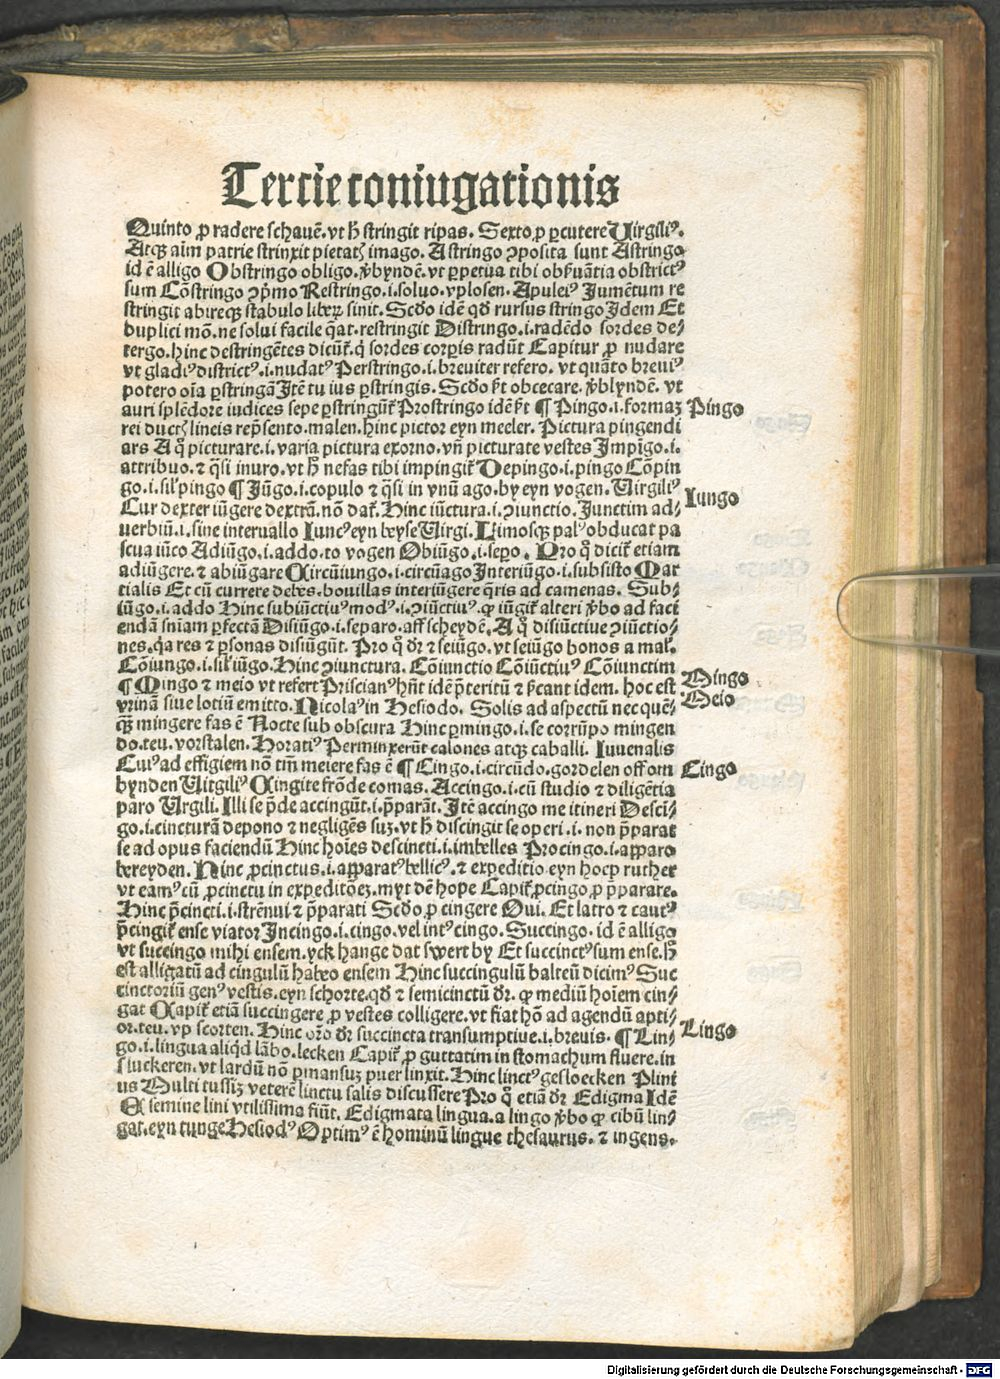 Tercie coniugationis
Quinto ꝓ radere schauē. vt h̄ stringit ripas. Sexto ꝓ ꝑcutere Uirgiliꝰ.
Atqꝫ aīm patrie strinxit pietatꝭ imago. Astringo ꝯposita sunt Astringo
id ē alligo Obstringo obligo. v̄byndē. vt ꝑpetua tibi obẜuātia obstrictꝰ
sum Cōstringo ꝯp̄mo Restringo .i. soluo. vplosen. Apuleiꝰ Jumētum re
stringit abireqꝫ stabulo liberꝫ sinit. Scd̄o idē qd̄ rursus stringo Jdem Et
duplici mō. ne solui facile q̄at. restringit Distringo .i. radēdo sordes de⸗
tergo. hinc destringētes dicūt̄. q̇ sordes corꝑis radūt Capitur ꝓ nudare
vt gladiꝰ districtꝰ .i. nudatꝰ Perstringo .i. breuiter refero. vt quāto breuiꝰ
potero oīa ꝑstringā Jtē tu ius ꝑstringis. Scd̄o ẜt obcecare. v̄blyndē. vt
auri splēdore iudices sepe ꝑstringūt̄ Prostringo idē ẜt ¶ Pingo .i. formaꝫ
Pingo
rei ductꝭ lineis rep̄sento. malen. hinc pictor eyn meeler. Pictura pingendi
ars A q̊ picturare .i. varia pictura exorno. vn̄ picturate vestes Jmpīgo .i.
attribuo. ⁊ q̄si inuro. vt h̄ nefas tibi impingit̄ Depingo .i. pingo Cōpin
go .i. sil̄ pingo ¶ Jūgo .i. copulo ⁊ q̄si in vnū ago. by eyn vogen. Uirgiliꝰ
Iungo
Cur dexter iūgere dextrā. nō dat̄. Hinc iūctura .i. ꝯiunctio. Junctim ad⸗
uerbiū .i. sine interuallo Juncꝰ eyn beyse Uirgi. Limosqꝫ palꝰ obducat pa
scua iūco Adiūgo .i. addo. to vogen Obiūgo .i. seꝑo. Pro q̊ dicit̄ etiam
adiūgere. ⁊ abiūgare Circūiungo .i. circūago Interiūgo .i. subsisto Mar
tialis Et cū currere debes. bouillas interiūgere q̄ris ad camenas. Sub⸗
iūgo .i. addo Hinc subiūctiuꝰ modꝰ .i. ꝯiūctiuꝰ. qꝫ iūgit̄ alteri v̄bo ad faci
endā sniam ꝑfectā Disiūgo .i. separo. aff scheydē. A q̊ disiūctiue ꝯiūctio⸗
nes. q̇a res ⁊ ꝑsonas disiūgūt. Pro q̊ dr̄ ⁊ seiūgo. vt seiūgo bonos a mal̄.
Cōiungo .i. sil̄ iūgo. Hinc ꝯiunctura. Cōiunctio Cōiūctiuꝰ Cōiunctim
¶ Mingo ⁊ meio vt refert Priscianꝰ hn̄t idē p̄teritū ⁊ ẜcant idem. hoc est
Mingo
Meio
vrinā siue lotiū emitto. Nicolaꝰ in Hesiodo. Solis ad aspectū nec quē⸗
qꝫ mingere fas ē Nocte sub obscura Hinc ꝑmingo .i. se corrūpo mingen
do. teu. vorstalen. Horatiꝰ Perminxerūt calones atqꝫ caballi. Iuuenalis
Cuiꝰ ad effigiem nō tm̄ meiere fas ē ¶ Cingo .i. circūdo. gordelen off om
Cingo
bynden Uirgiliꝰ Cingite frōde comas. Accingo .i. cū studio ⁊ diligētia
paro Uirgili. Illi se p̄de accingūt .i. p̄parāt. Jtē accingo me itineri Desci⸗
go .i. cincturā depono ⁊ negligēs suꝫ. vt h̄ discingit se operi .i. non p̄parat
se ad opus faciendū Hinc hoīes descincti .i. imbelles Procingo .i. apparo
bereyden. Hinc ꝓcinctus .i. apparatꝰ bellicꝰ. ⁊ expeditio eyn hocp ruther
vt eamꝰ cū ꝓcinctu in expeditōeꝫ. myt dē hope Capit̄ ꝓcingo ꝓ p̄parare.
Hinc p̄cincti .i. strēnui ⁊ p̄parati Scd̄o ꝓ cingere Oui. Et latro ⁊ cautꝰ
p̄cingit̄ ense viator Jncingo .i. cingo. vel intꝰ cingo. Succingo. id ē alligo
vt succingo mihi ensem. yck hange dat swert by Et succinctꝰ sum ense. h̄
est alligatū ad cingulū habeo ensem Hinc succingulū balteū dicimꝰ Suc
cinctoriū genꝰ vestis. eyn schorte. qd̄ ⁊ semicinctū dr̄. qꝫ mediū hoīem cin⸗
gat Capit̄ etiā succingere ꝓ vestes colligere. vt fiat hō ad agendū apti⸗
or. teu. vp scorten. Hinc orō dr̄ succincta transumptiue .i. breuis. ¶ Lin⸗
Lingo
go .i. lingua aliqd lābo. lecken Capit̄ ꝓ guttatim in stomachum fluere. in
sluckeren. vt lardū nō p̄mansuꝫ puer linxit. Hinc linctꝰ gesloecken Plini
us Multi tussiꝫ veterē linctu salis discussere Pro q̊ etiā dr̄ Edigma Idē
E semine lini vtilissima fiūt. Edigmata lingua. a lingo v̄bo qꝫ cibū lin⸗
gat. eyn tunge Hesiodꝰ Optimꝰ ē hominū lingue thesaurus. ⁊ ingens.
Digitalisierung gefördert durch die Deutsche Forschungsgemeinschaft - DFG